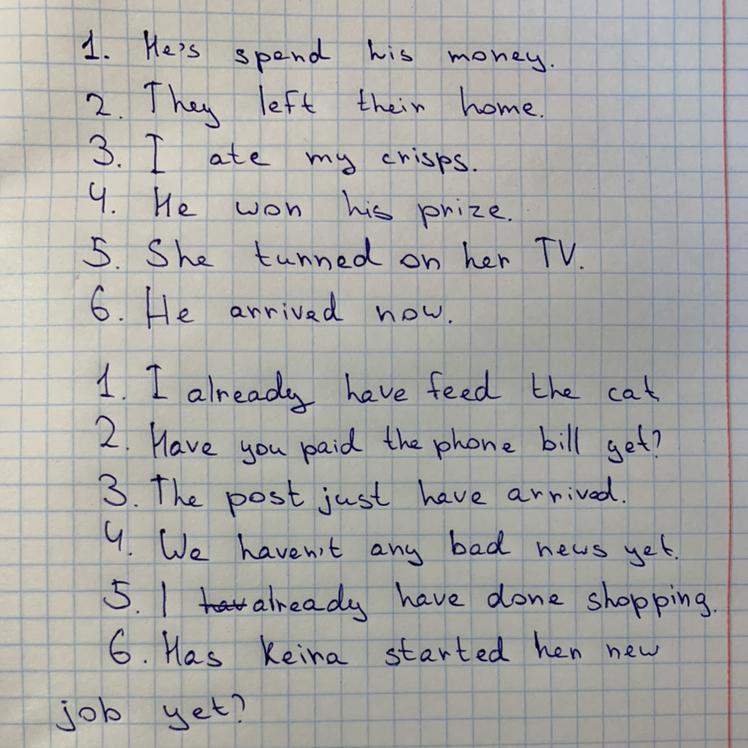 1. He's spend his money.
2. They left their home.
3. I ate my crisps.
4. He won his prize.
5. She turned on her TV.
6. He arrived now.
1. I already have feed the cat
2. Have you paid the phone bill yet?
3. The post just have arrived.
4. We haven't any bad news yet.
5. I hav already have done shopping.
6. Has Keira started her new
job yet?